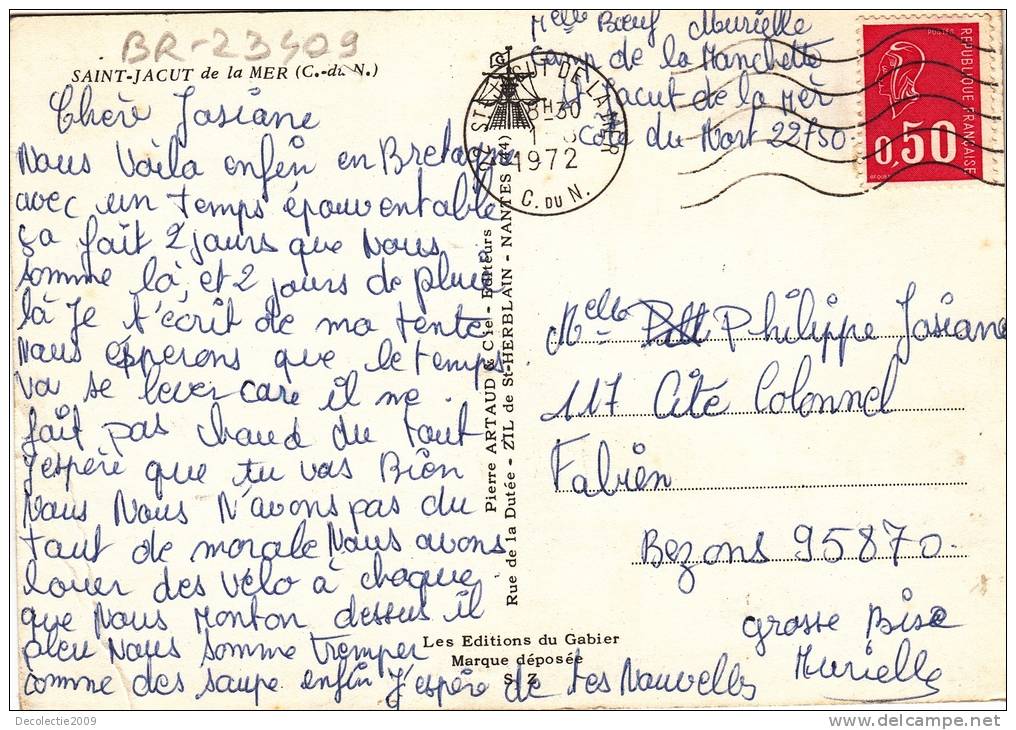 BR-23409
SAINT-JACUT de la MER (C.-du N.)
Chère Josiane
Nous Voila enfin en Bretagne
avec un temps épouventable
ça fait 2 jours que Nous
somme là, et 2 jours de pluie
là Je t'écrit de ma tente
Nous éspperons que le temps
va se lever care il ne
fait pas chaud du tout
J'espère que tu vas Bien
Nous Nous N'avons pas du
tout de morale Nous avons
louer des vélo à chaque
que Nous Monton dessus il
pleu Nous somme tremper
comme des saupe enfin J'espère de tes Nouvelles
grosse Bise
Murielle
Pierre ARTAUD & Cie - Editeurs
Rue de la Dutée - ZIL de St-HERBLAIN - NANTES (44)
Les Editions du Gabier
Marque déposée
S. Z.
Melle Bœuf Murielle
Camp de la Manchette
St Jacut de la Mer
Cote du Nort 22750
ST JACUT DE LA MER
8H30
1972
C. DU N.
POSTES
REPUBLIQUE FRANÇAISE
0,50
Melle Philippe Josiane
117 Cité Colonnel
Fabien
Bezons 95870
Decolectie2009
www.delcampe.net